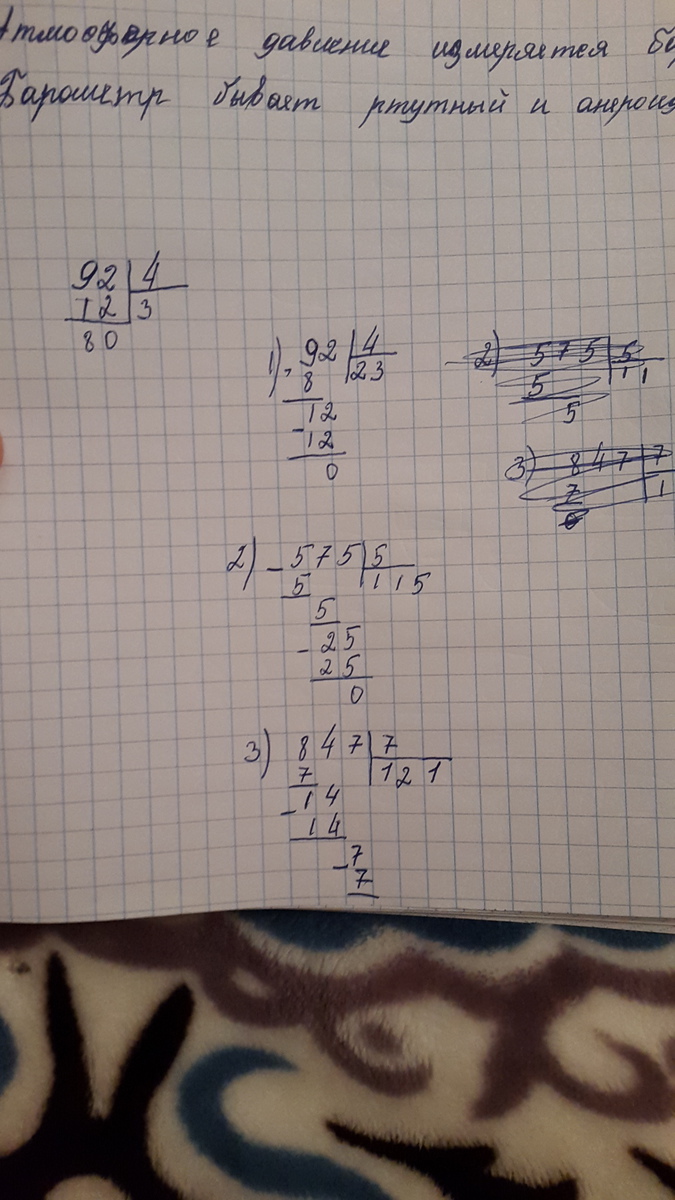 Атмосферное давление измеряется
Барометр бывает ртутный и
92 4
12 3
80
1) 92 4
8 23
- 12
12
0
2) 575 5
5 11
5
3) 847 7
7 1
2) - 575 5
5 115
5
- 25
25
0
3) 847 7
7 121
- 14
14
- 7
7